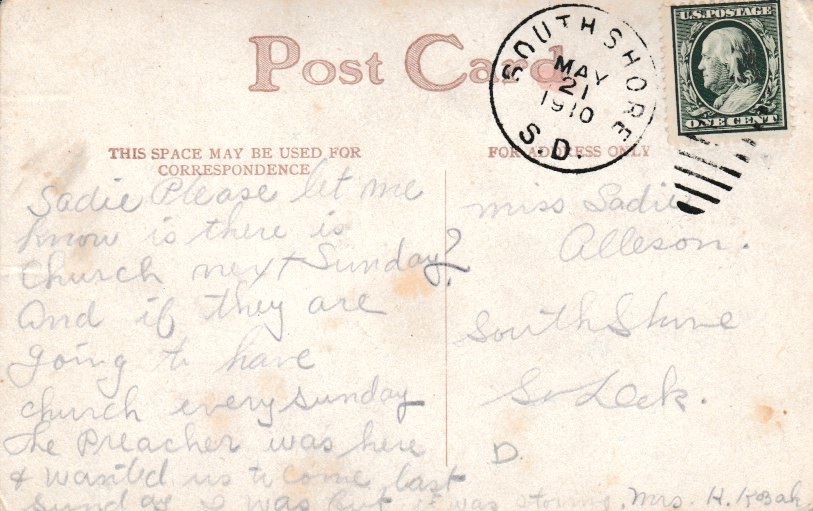 Post Card
SOUTH SHORE
MAY
21
1910
S.D.
U.S. POSTAGE
ONE CENT
THIS SPACE MAY BE USED FOR
CORRESPONDENCE
FOR ADDRESS ONLY
Sadie Please let me
know is there is
Church next Sunday?
And if they are
going to have
church every Sunday
the Preacher was here
& wanted us to come last
Sunday I was but it was storming, Mrs. H.
Miss Sadie
Alleson.
South Shore
So Dak.
D.